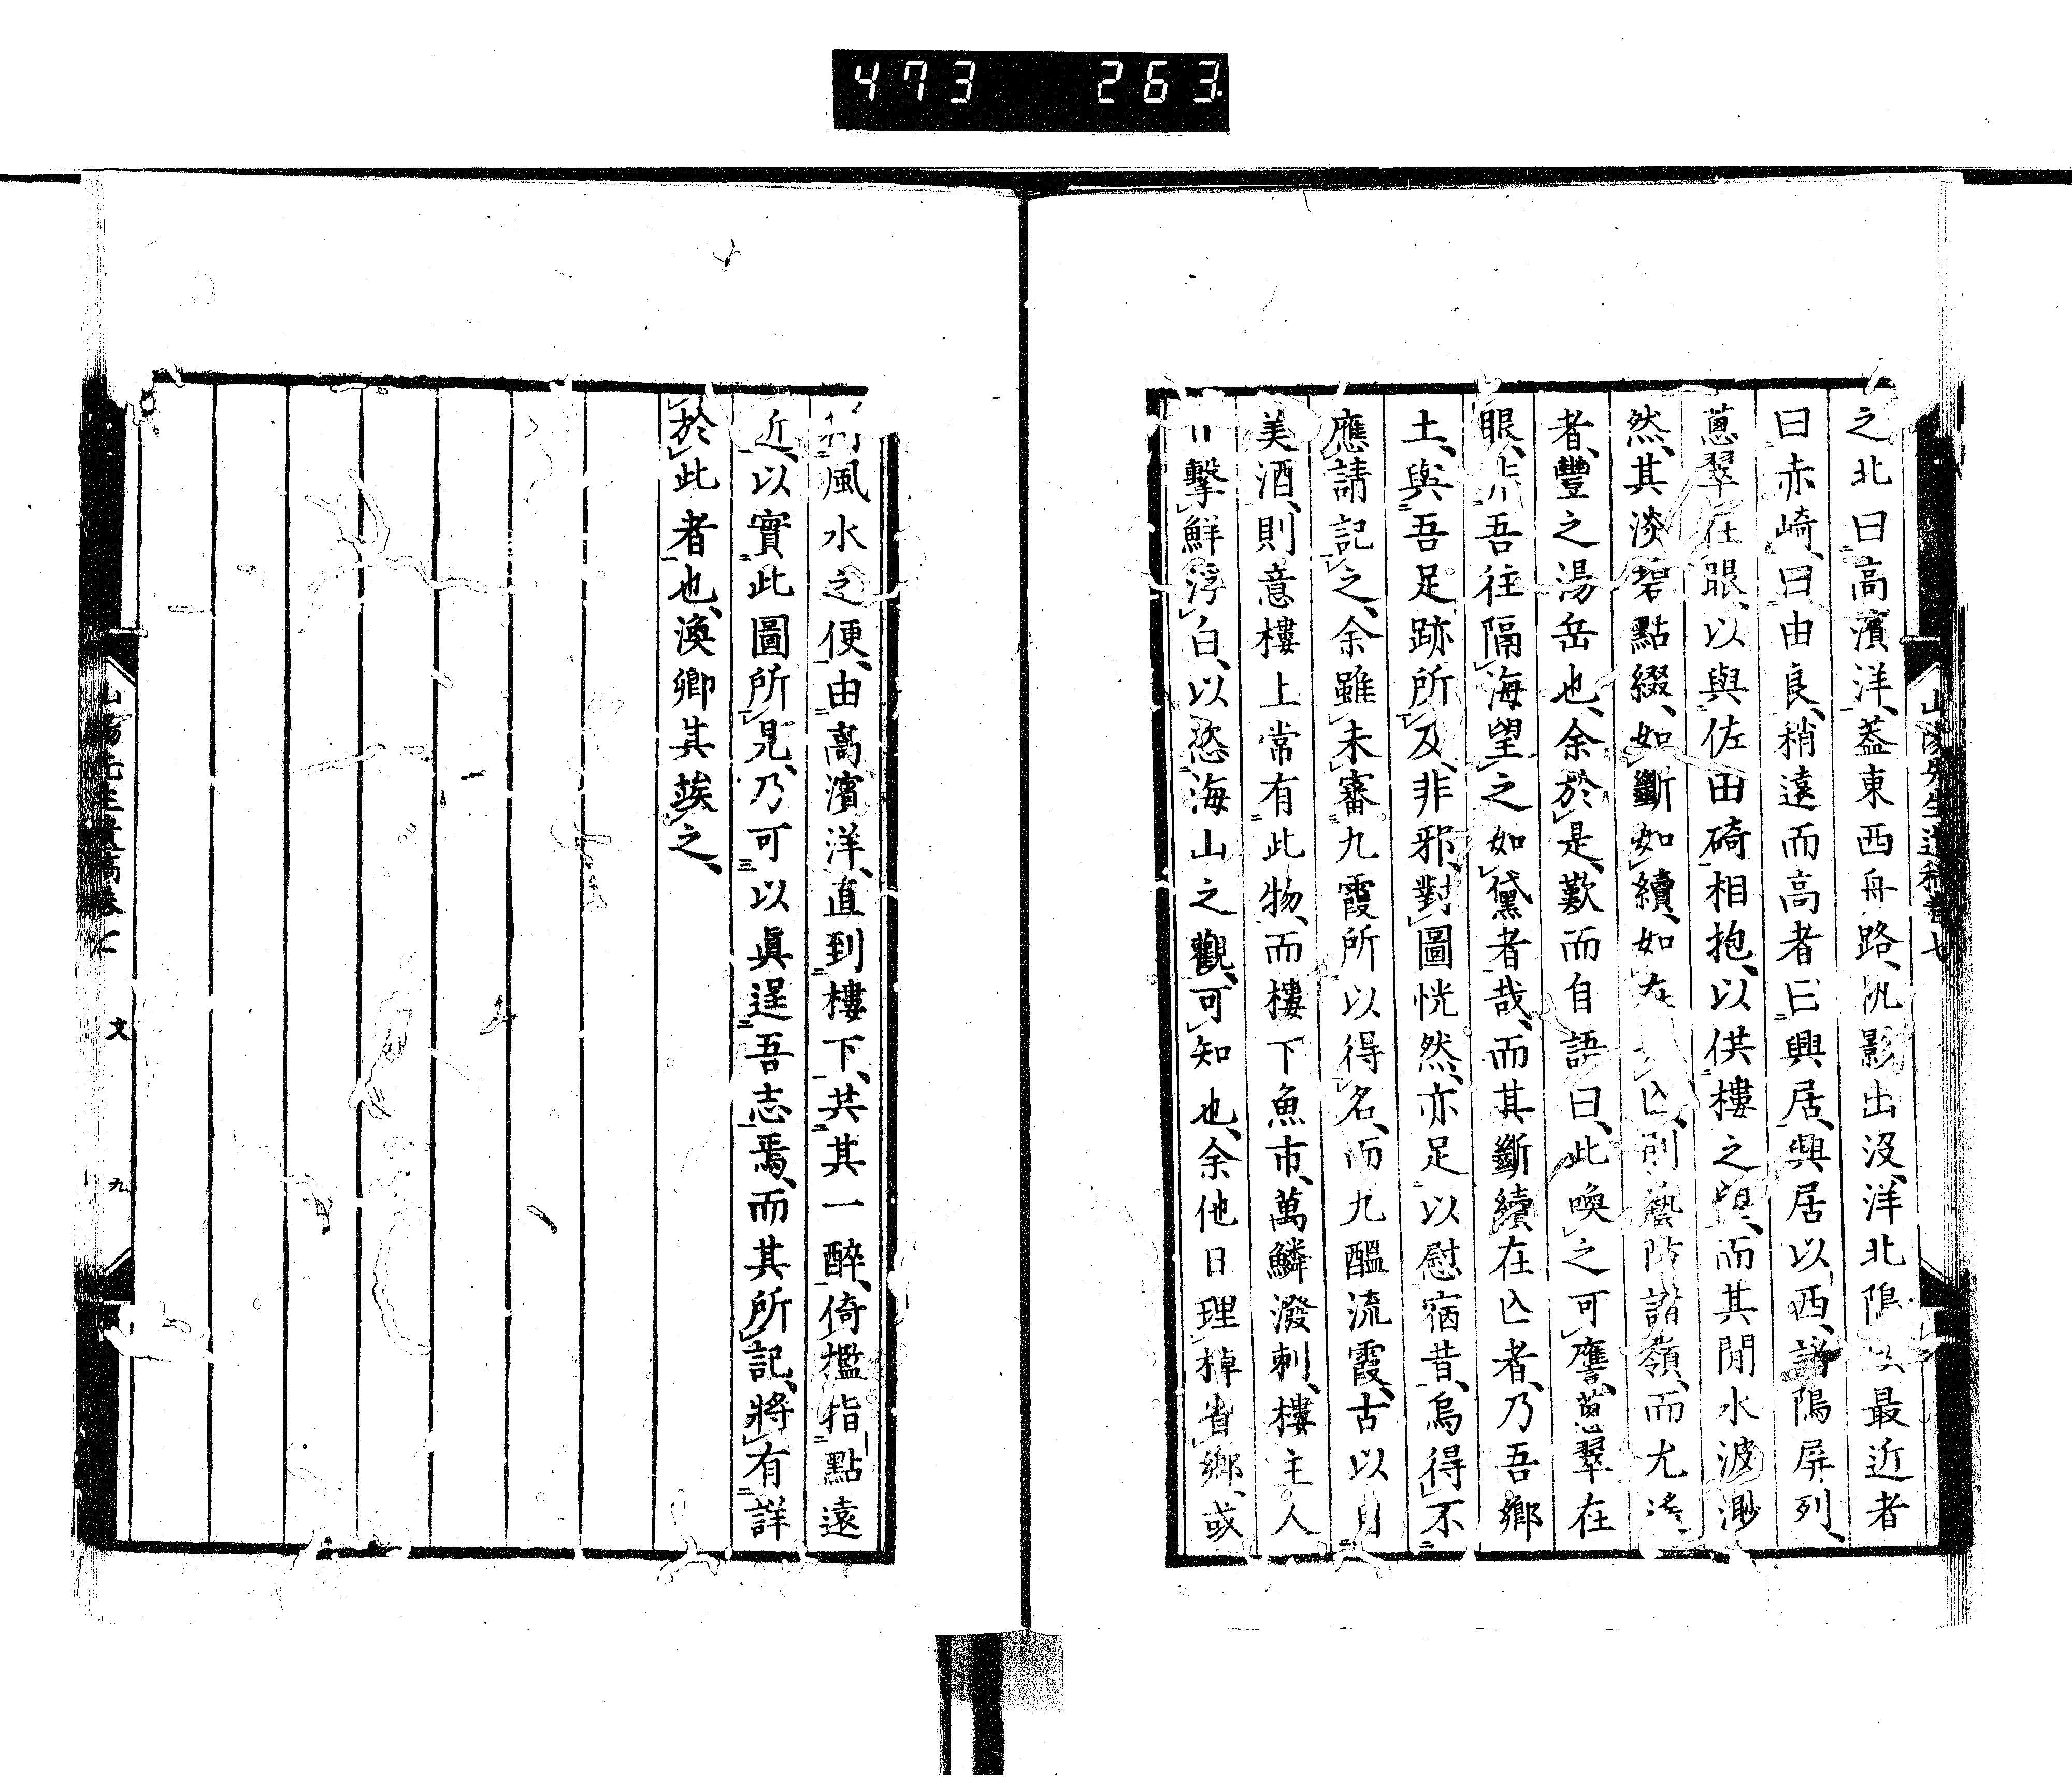 473 263
山陽先生遺稿卷七
之北曰高濱洋、蓋東西舟路、帆影出沒、洋北隝 最近者
曰赤崎、曰由良、稍遠而高者曰興居、興居以西、諸隝屏列、
蔥翠在眼、以與佐田碕相抱、以供樓之望、而其閒水波渺
然、其淡碧點綴、如斷如續、如在 亾、則藝防諸嶺、而尤 、
者、豐之湯岳也、余於是、歎而自語曰、此喚之可譍、蔥翠在
眼、非吾往隔海望之如黛者哉、而其斷續在亾者、乃吾鄉
土、與吾足跡所及、非邪、對圖恍然、亦足以慰宿昔、烏得不
應請記之、余雖未審九霞所以得名、而九醞流霞、古以目
美酒、則意樓上常有此物、而樓下魚市、萬鱗潑刺、樓主人
擊鮮浮白、以恣海山之觀、可知也、余他日理棹省鄉、或
風水之便、由高濱洋、直到樓下、共其一醉、倚檻指點遠
近、以實此圖所見、乃可以眞逞吾志焉、而其所記、將有詳
於此者也、渙卿其竢之、
山陽先生遺稿卷七 文 九